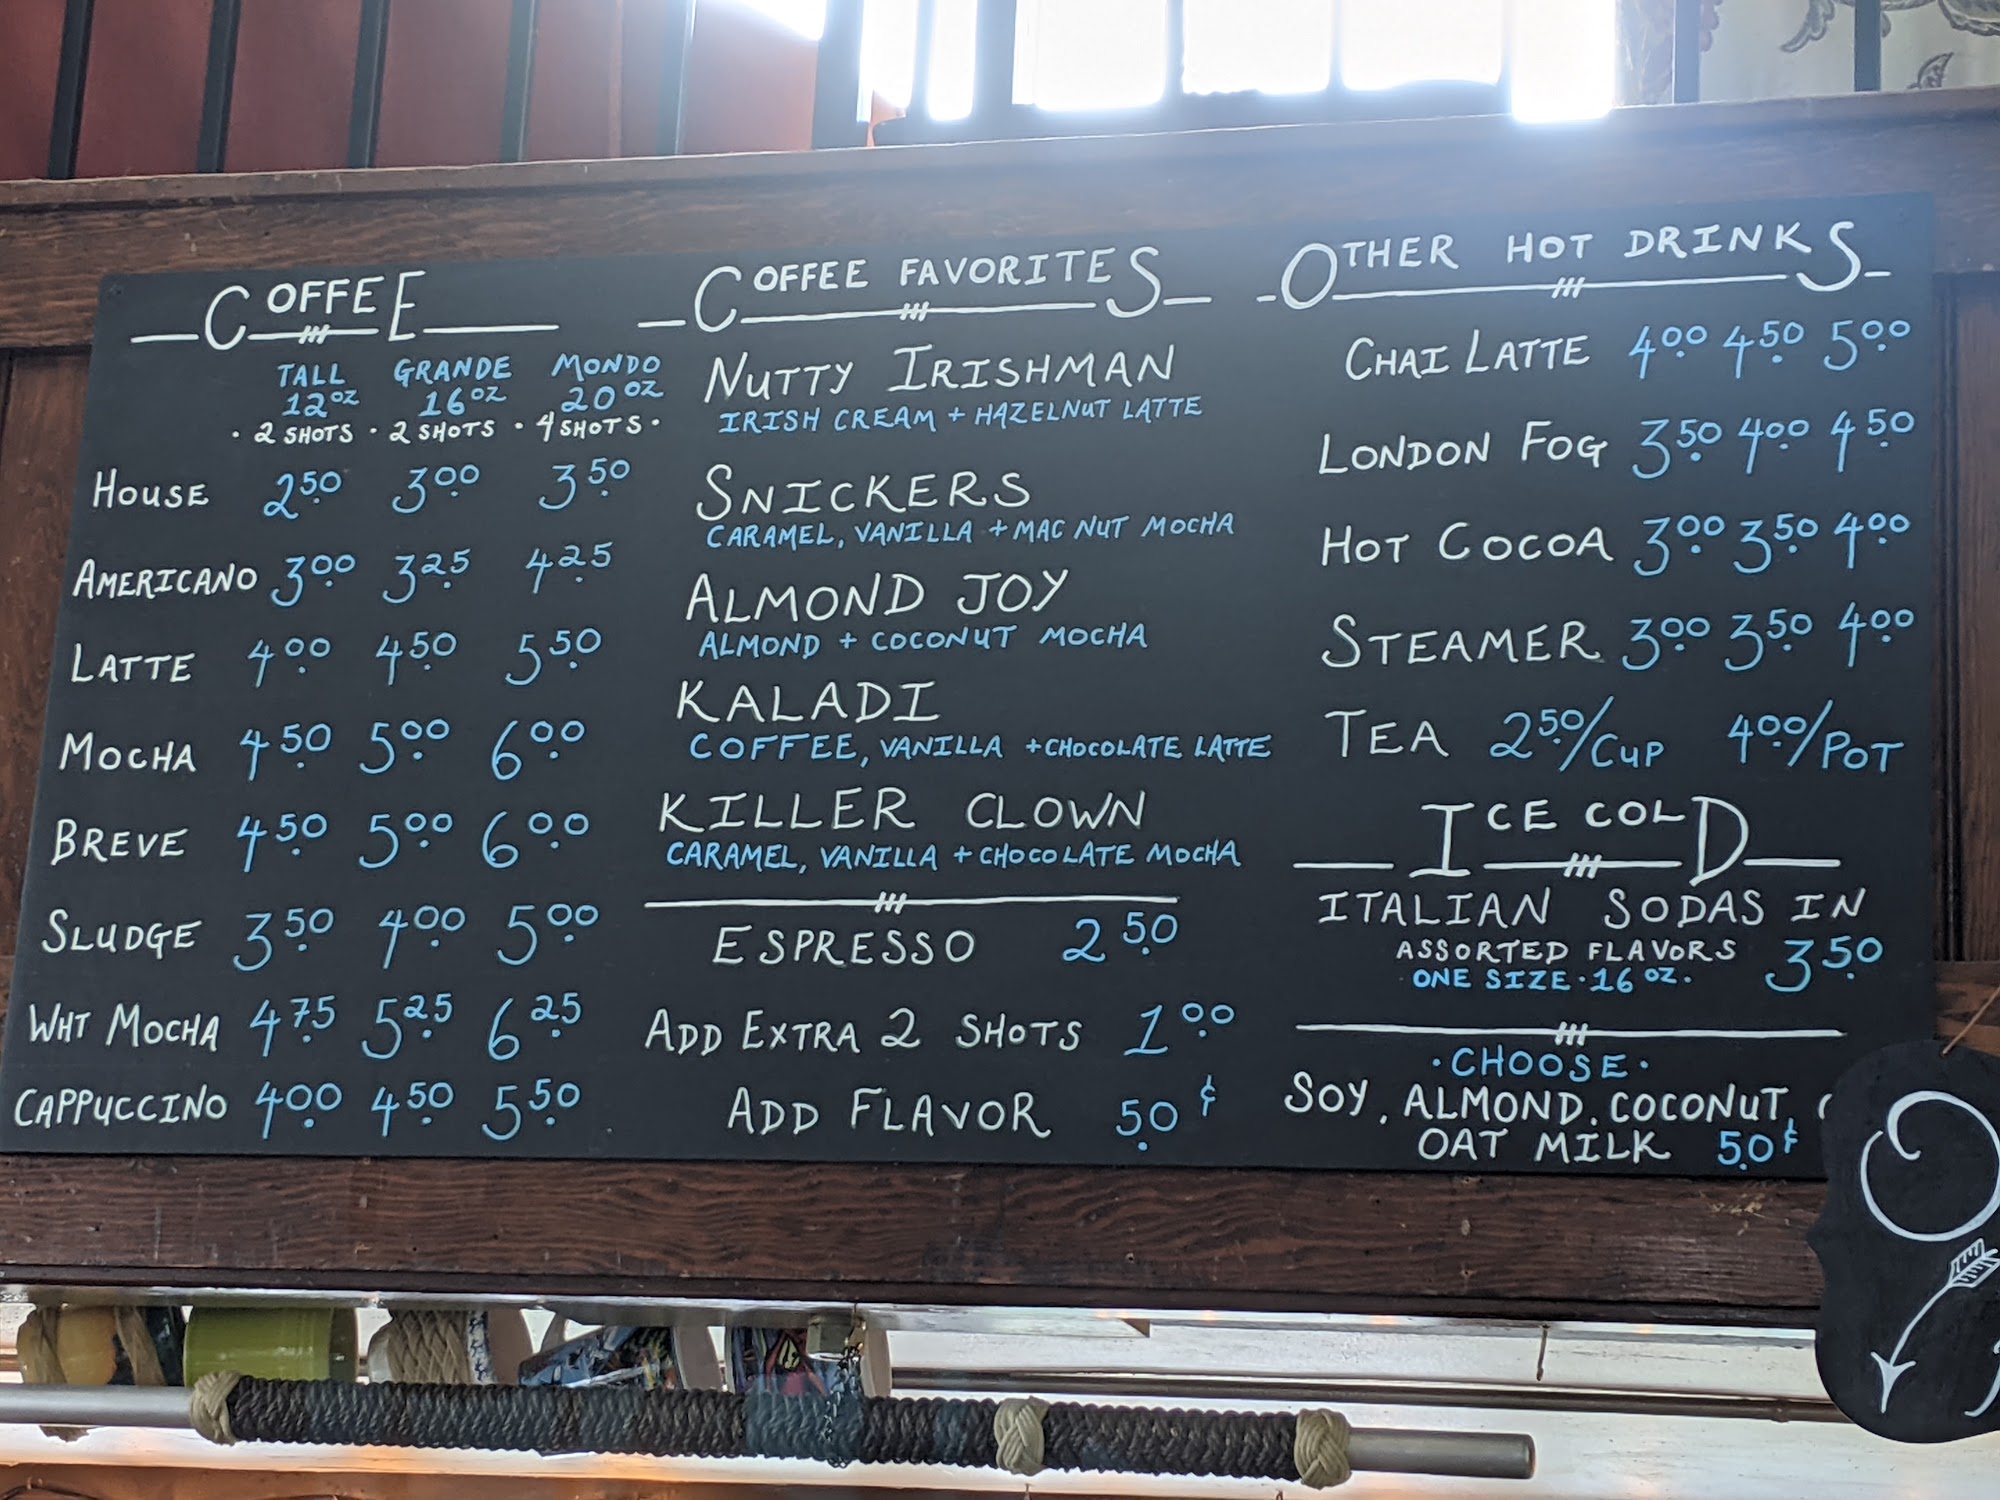 COFFEE
TALL GRANDE MONDO
12oz 16oz 20oz
· 2 SHOTS · 2 SHOTS · 4 SHOTS ·
HOUSE 2.50 3.00 3.50
AMERICANO 3.00 3.25 4.25
LATTE 4.00 4.50 5.50
MOCHA 4.50 5.00 6.00
BREVE 4.50 5.00 6.00
SLUDGE 3.50 4.00 5.00
WHT MOCHA 4.75 5.25 6.25
CAPPUCCINO 4.00 4.50 5.50
COFFEE FAVORITES
NUTTY IRISHMAN
IRISH CREAM + HAZELNUT LATTE
SNICKERS
CARAMEL, VANILLA + MAC NUT MOCHA
ALMOND JOY
ALMOND + COCONUT MOCHA
KALADI
COFFEE, VANILLA + CHOCOLATE LATTE
KILLER CLOWN
CARAMEL, VANILLA + CHOCOLATE MOCHA
ESPRESSO 2.50
ADD EXTRA 2 SHOTS 1.00
ADD FLAVOR 50¢
OTHER HOT DRINKS
CHAI LATTE 4.00 4.50 5.00
LONDON FOG 3.50 4.00 4.50
HOT COCOA 3.00 3.50 4.00
STEAMER 3.00 3.50 4.00
TEA 2.50/CUP 4.00/POT
ICE COLD
ITALIAN SODAS IN
ASSORTED FLAVORS 3.50
ONE SIZE · 16 oz.
· CHOOSE ·
SOY, ALMOND, COCONUT,
OAT MILK 50¢